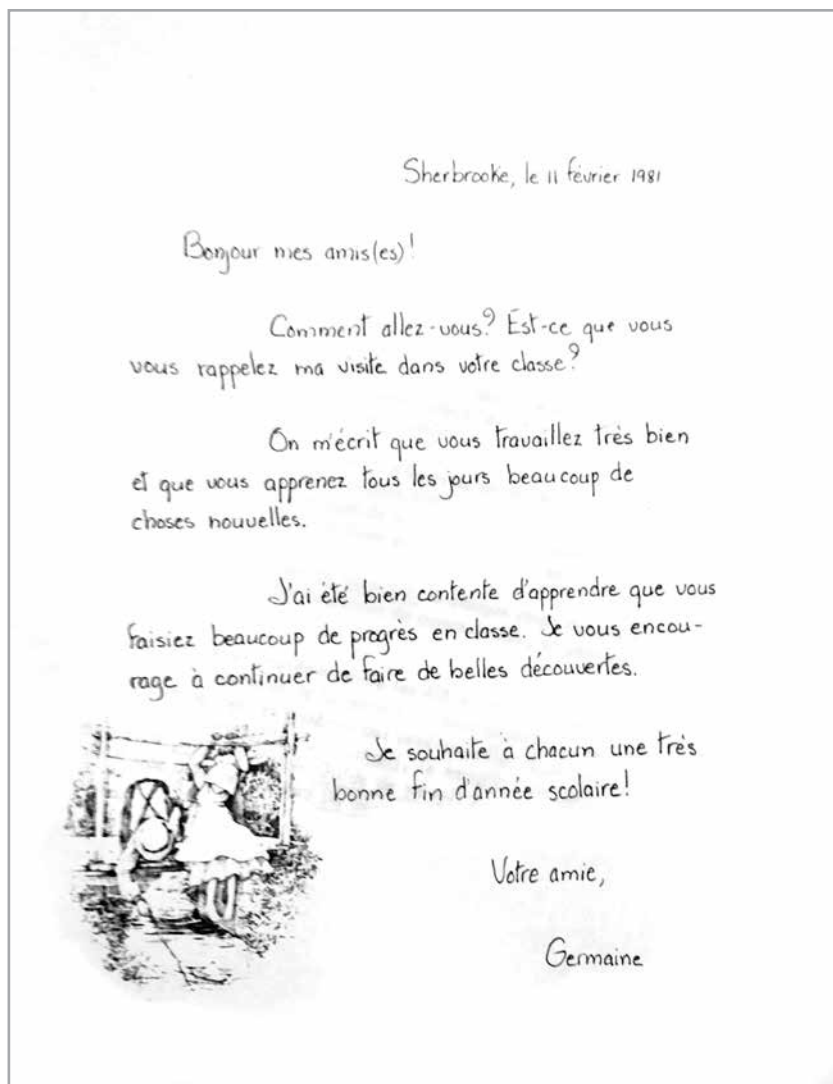 Sherbrooke, le 11 février 1981
Bonjour mes amis(es)!
Comment allez-vous? Est-ce que vous
vous rappelez ma visite dans votre classe?
On m'écrit que vous travaillez très bien
et que vous apprenez tous les jours beaucoup de
choses nouvelles.
J'ai été bien contente d'apprendre que vous
faisiez beaucoup de progrès en classe. Je vous encou-
rage à continuer de faire de belles découvertes.
Je souhaite à chacun une très
bonne fin d'année scolaire!
Votre amie,
Germaine